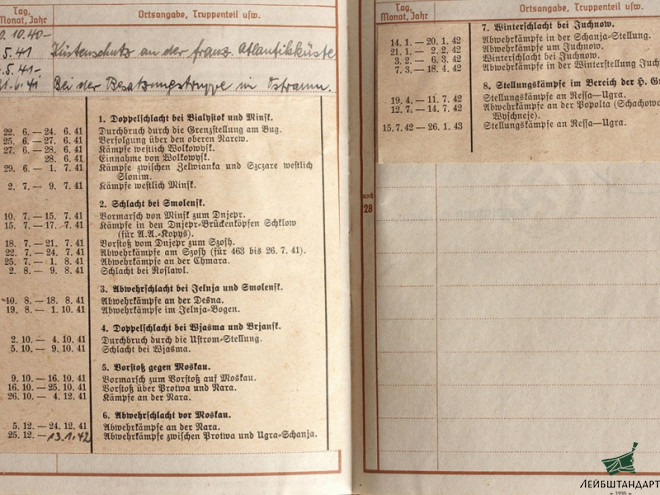 Tag,
Monat, Jahr
Ortsangabe, Truppenteil usw.
10.40-
5.41 Küstenschutz an der franz. Atlantikküste
.5.41-
.6.41 Bei der Besatzungstruppe in Ostraum.
1. Doppelschlacht bei Bialystok und Minsk.
22. 6. — 24. 6. 41 Durchbruch durch die Grenzstellung am Bug.
25. 6. — 27. 6. 41 Verfolgung über den oberen Narew.
27. 6. — 28. 6. 41 Kämpfe westlich Wolkowysk.
28. 6. 41 Einnahme von Wolkowysk.
29. 6. — 1. 7. 41 Kämpfe zwischen Zelwianka und Szczare westlich
Slonim.
2. 7. — 9. 7. 41 Kämpfe westlich Minsk.
2. Schlacht bei Smolensk.
10. 7. — 15. 7. 41 Vormarsch von Minsk zum Dnjepr.
15. 7. — 17. 7. 41 Kämpfe in den Dnjepr-Brückenköpfen Schklow
(für A.A.-Kopys).
18. 7. — 21. 7. 41 Vorstoß vom Dnjepr zum Szosh.
22. 7. — 24. 7. 41 Abwehrkämpfe am Szosh (für 463 bis 26. 7. 41).
25. 7. — 1. 8. 41 Abwehrkämpfe an der Chmara.
2. 8. — 9. 8. 41 Schlacht bei Roslawl.
3. Abwehrschlacht bei Jelnja und Smolensk.
10. 8. — 18. 8. 41 Abwehrkämpfe an der Desna.
19. 8. — 1. 10. 41 Abwehrkämpfe im Jelnja-Bogen.
4. Doppelschlacht bei Wjasma und Brjansk.
2. 10. — 4. 10. 41 Durchbruch durch die Ustrom-Stellung.
5. 10. — 9. 10. 41 Schlacht bei Wjasma.
5. Vorstoß gegen Moskau.
9. 10. — 16. 10. 41 Vormarsch zum Vorstoß auf Moskau.
16. 10. — 25. 10. 41 Vorstoß über Protwa und Nara.
26. 10. — 4. 12. 41 Kämpfe an der Nara.
6. Abwehrschlacht vor Moskau.
5. 12. — 24. 12. 41 Abwehrkämpfe an der Nara.
25. 12. — 13.1.42 Abwehrkämpfe zwischen Protwa und Ugra-Schanja.
Tag,
Monat, Jahr
Ortsangabe, Truppenteil usw.
7. Winterschlacht bei Juchnow.
14. 1. — 20. 1. 42 Abwehrkämpfe in der Schanja-Stellung.
21. 1. — 2. 2. 42 Abwehrkämpfe um Juchnow.
3. 2. — 6. 3. 42 Winterschlacht bei Juchnow.
7. 3. — 18. 4. 42 Abwehrkämpfe in der Winterstellung Juch
8. Stellungskämpfe im Bereich der H. Gr
19. 4. — 11. 7. 42 Stellungskämpfe an Ressa-Ugra.
12. 7. — 14. 7. 42 Abwehrkämpfe an der Popolta (Schachowa
15. 7. 42 — 26. 1. 43 Stellungskämpfe an Ressa-Ugra.
28
ЛЕЙБШТАНДАРТ
1998